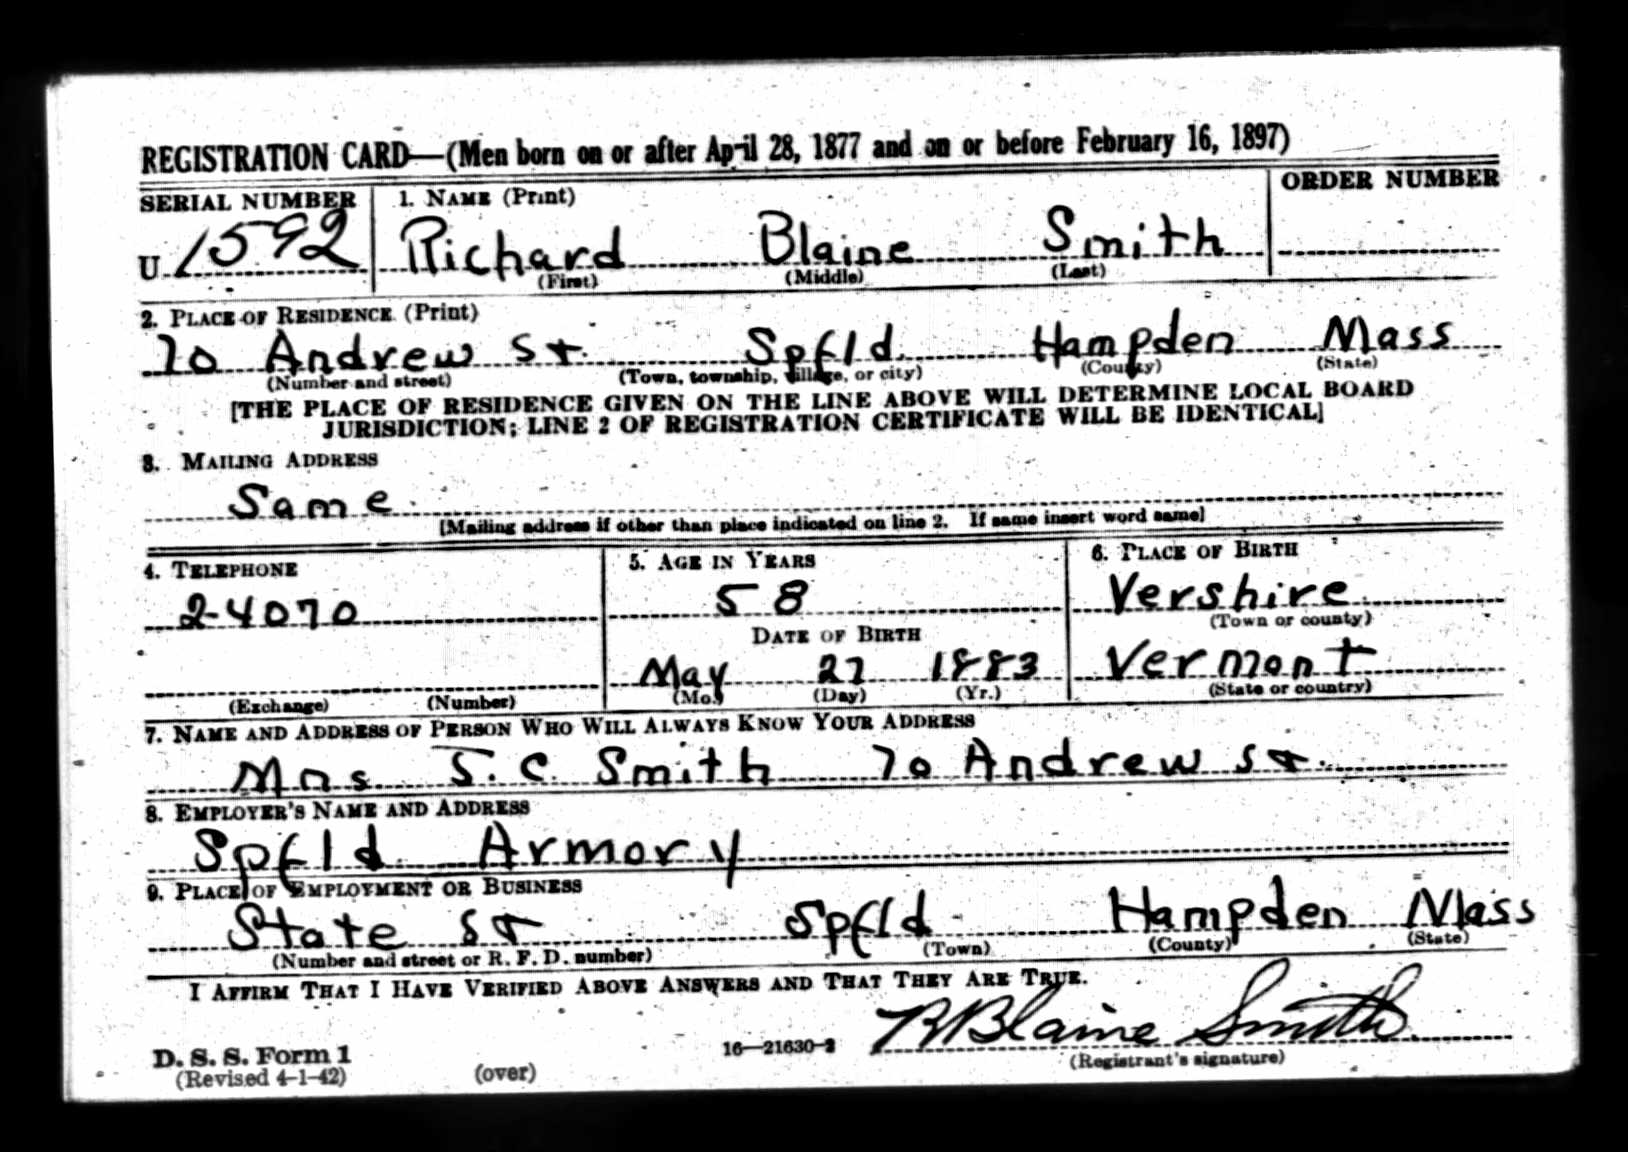 REGISTRATION CARD—(Men born on or after April 28, 1877 and on or before February 16, 1897)
SERIAL NUMBER 1. NAME (Print) ORDER NUMBER
U 1592 Richard Blaine Smith
(First) (Middle) (Last)
2. PLACE OF RESIDENCE (Print)
70 Andrew St. Spfld. Hampden Mass
(Number and street) (Town, township, village, or city) (County) (State)
[THE PLACE OF RESIDENCE GIVEN ON THE LINE ABOVE WILL DETERMINE LOCAL BOARD
JURISDICTION; LINE 2 OF REGISTRATION CERTIFICATE WILL BE IDENTICAL]
3. MAILING ADDRESS
Same
[Mailing address if other than place indicated on line 2. If same insert word same]
4. TELEPHONE 5. AGE IN YEARS 6. PLACE OF BIRTH
2-4070 58 Vershire
(Town or county)
DATE OF BIRTH
May 27 1883 Vermont
(Exchange) (Number) (Mo.) (Day) (Yr.) (State or country)
7. NAME AND ADDRESS OF PERSON WHO WILL ALWAYS KNOW YOUR ADDRESS
Mrs J. C. Smith 70 Andrew St.
8. EMPLOYER'S NAME AND ADDRESS
Spfld Armory
9. PLACE OF EMPLOYMENT OR BUSINESS
State St Spfld Hampden Mass
(Number and street or R. F. D. number) (Town) (County) (State)
I AFFIRM THAT I HAVE VERIFIED ABOVE ANSWERS AND THAT THEY ARE TRUE.
R Blaine Smith
D. S. S. Form 1 16—21630-2 (Registrant's signature)
(Revised 4-1-42) (over)